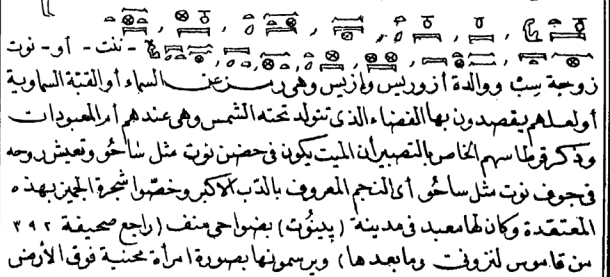 - ننت - أو - نوت
زوجة سب ووالدة أزوريس وإزيس وهى رمز عن السماء أو القبّة السماوية
أولعلهم يقصدون بها الفضاء الذى تتولد تحته الشمس وهى عندهم أم المعبودات
وذكر قرطاسهم الخاص بالتصبير أن الميت يكون فى حضن نوت مثل ساحُو وتعيش روحه
فى جوف نوت مثل ساحُو أى النجم المعروف بالدّب الاكبر وخصّوا شجرة الجميز بهذه
المعتقدة وكان لها معبد فى مدينة (پِينُوت) بضواحى منف (راجع صحيفة ٣٩٢
من قاموس لنزونى وما بعدها) ويرسمونها بصورة امرأة محنية فوق الأرض